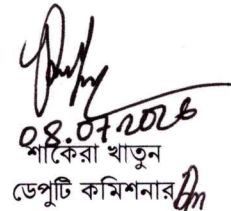 08.07.2026
শাকেরা খাতুন
ডেপুটি কমিশনার